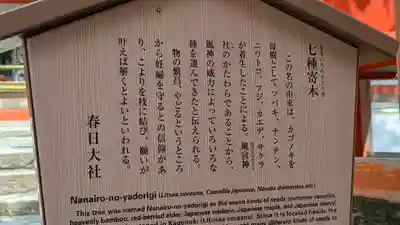 七種寄木
この名の由来は、カゴノキを
母樹としてツバキ、ナンテン、
ニワトコ、フジ、カエデ、サクラ
が着生したことによる。風宮神
社のかたわらであることから、
風神の威力によっていろいろな
種を運んできたと伝えられる。
物の繁昌、やどるというところ
から妊婦を守るとの信仰があ
り、こよりを枝に結び、願いが
叶えば解くとよいといわれる。
春日大社
Nanairo-no-yadorigi (Litsea coreana, Camellia japonica, Nandia domestica etc)
This tree was named Nanairo-no-yadorigi as the seven kinds of seeds (common camellia,
heavenly bamboo, red-berried elder, Japanese wisteria, Japanese maple, and Japanese cherry)
in Kagonoki (Litsea coreana). Since it is located beside the
many different kinds of seeds to